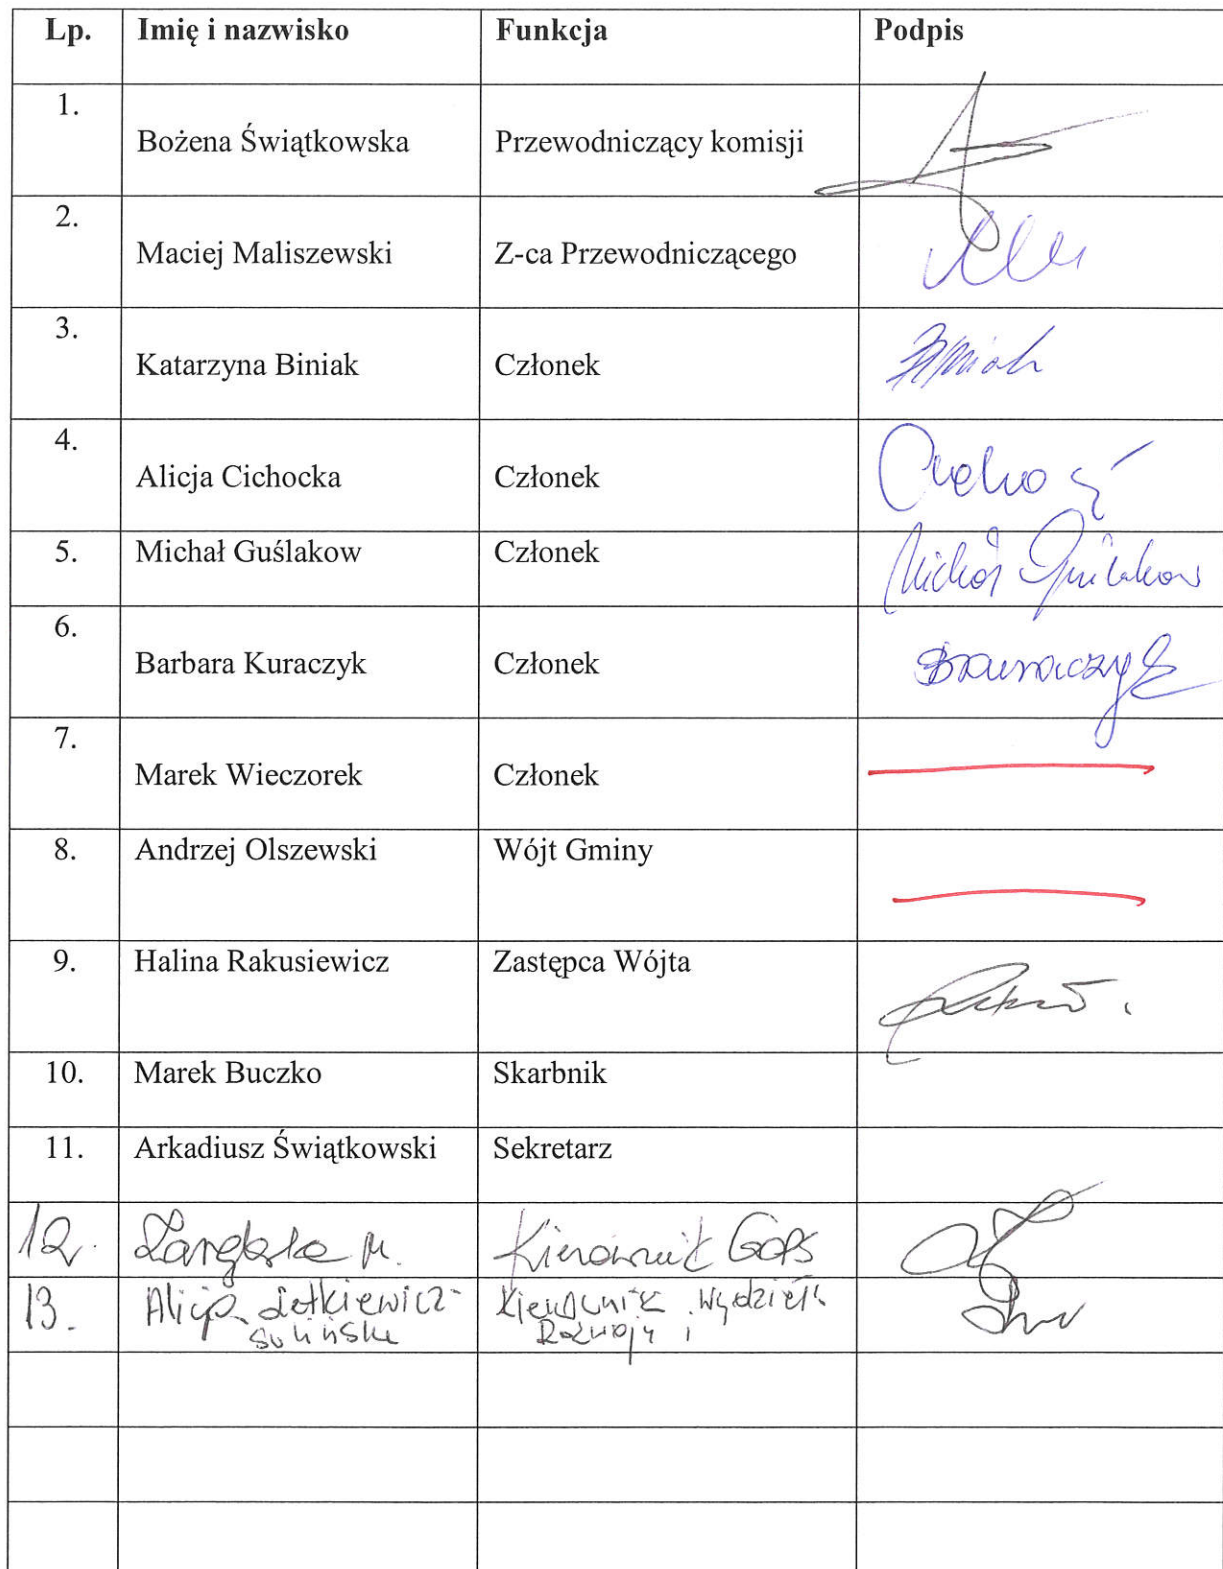 Lp. Imię i nazwisko Funkcja Podpis
1. Bożena Świątkowska Przewodniczący komisji
2. Maciej Maliszewski Z-ca Przewodniczącego
3. Katarzyna Biniak Członek
4. Alicja Cichocka Członek
5. Michał Guślakow Członek Michał Guślakow
6. Barbara Kuraczyk Członek BKuraczyk
7. Marek Wieczorek Członek
8. Andrzej Olszewski Wójt Gminy
9. Halina Rakusiewicz Zastępca Wójta
10. Marek Buczko Skarbnik
11. Arkadiusz Świątkowski Sekretarz
12. M. Kierownik GOPS
13. Alicja Kierownik Wydziału
Rozwoju i